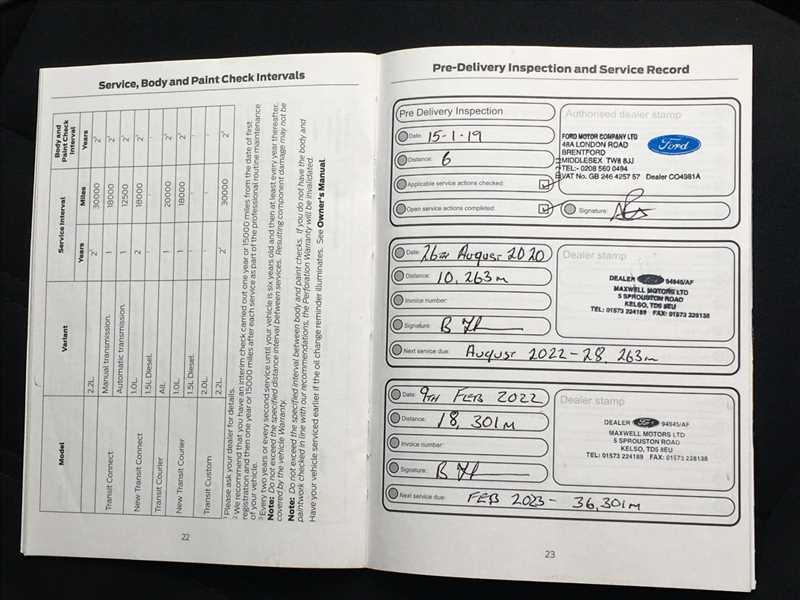 Service, Body and Paint Check Intervals
Model
Variant
Service Interval
Body and Paint Check Interval
Years
Miles
Years
2.2L
30000
Transit Connect
Manual transmission.
1
18000
Automatic transmission.
1
12500
New Transit Connect
1.0L
2
18000
1.5L Diesel.
Transit Courier
All.
1
20000
New Transit Courier
1.0L
1
18000
1.5L Diesel.
Transit Custom
2.0L
2.2L
30000
Please ask your dealer for details.
We recommend that you have an interim check carried out one year or 15000 miles from the date of first
registration and then one year or 15000 miles after each service as part of the professional routine maintenance
of your vehicle.
Every two years or every second service until your vehicle is six years old and then at least every year thereafter.
Note: Do not exceed the specified distance interval between services. Resulting component damage may not be
covered by the vehicle Warranty.
Note: Do not exceed the specified interval between body and paint checks. If you do not have the body and
paintwork checked in line with our recommendations, the Perforation Warranty will be invalidated.
Have your vehicle serviced earlier if the oil change reminder illuminates. See Owner's Manual.
22
Pre-Delivery Inspection and Service Record
Pre Delivery Inspection
Authorised dealer stamp
Date: 15-1-19
Distance: 6
Applicable service actions checked:
Open service actions completed:
FORD MOTOR COMPANY LTD
48A LONDON ROAD
BRENTFORD
MIDDLESEX TW8 8JJ
TEL:- 0208 560 0494
VAT No. GB 246 4257 57 Dealer CO4981A
Ford
Signature:
Date: 26TH August 2020
Distance: 10,263m
Invoice number:
Signature:
Next service due: August 2022-28,263m
Dealer stamp
DEALER Ford 94945/AF
MAXWELL MOTORS LTD
5 SPROUSTON ROAD
KELSO, TD5 8EU
TEL: 01573 224189 FAX: 01573 228138
Date: 9TH FEB 2022
Distance: 18,301m
Invoice number:
Signature:
Next service due: FEB 2023- 36,301m
Dealer stamp
DEALER Ford 94945/AF
MAXWELL MOTORS LTD
5 SPROUSTON ROAD
KELSO, TD5 8EU
TEL: 01573 224189 FAX: 01573 228138
23